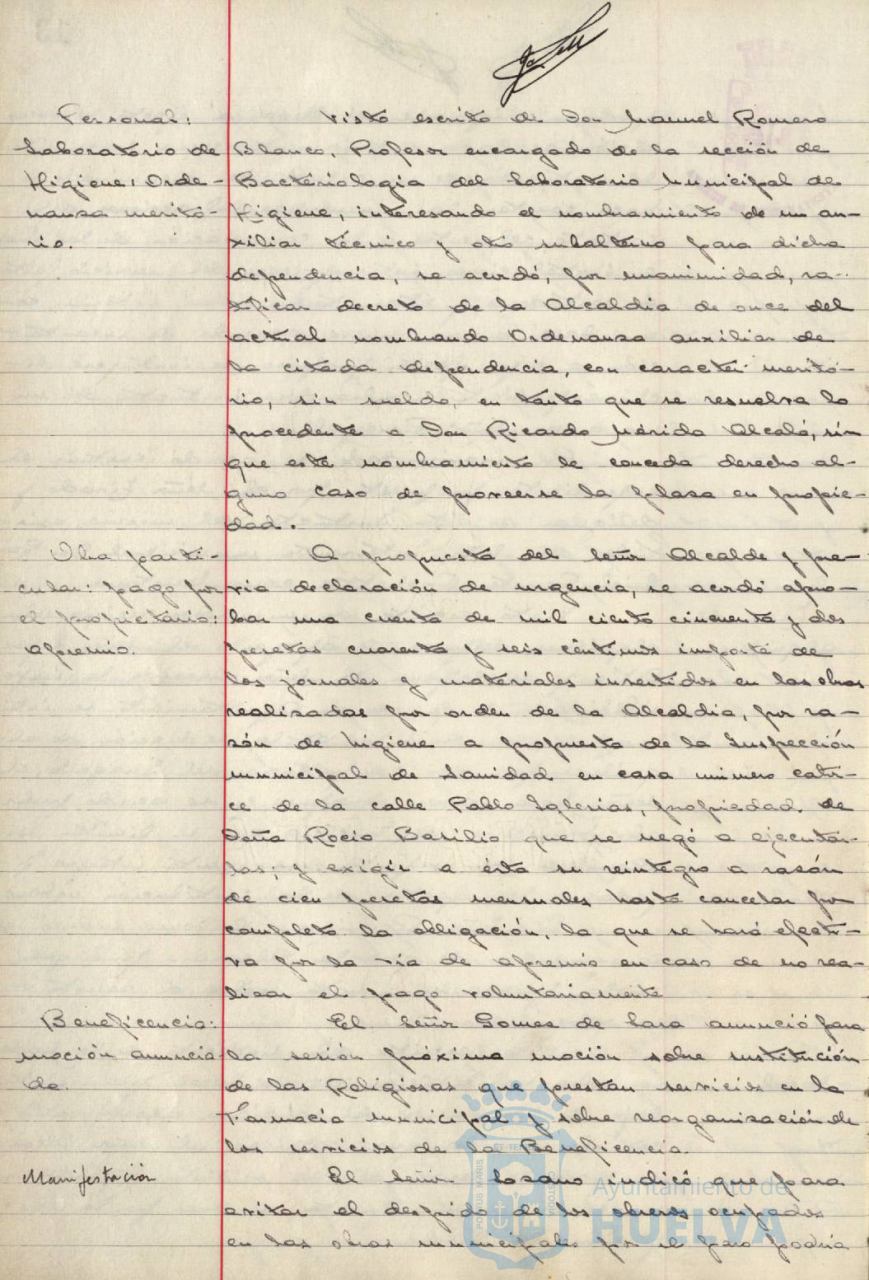 Personal:
Laboratorio de
Higiene: Orde-
nanza merito-
rio.
Visto escrito de Don Manuel Romero
Blanco, Profesor encargado de la sección de
Bacteriologia del Laboratorio Municipal de
Higiene, interesando el nombramiento de un au-
xiliar técnico y otro subalterno para dicha
dependencia, se acordó, por unanimidad, ra-
tificar decreto de la Alcaldia de once del
actual nombrando Ordenanza auxiliar de
la citada dependencia, con caracter meritó-
rio, sin sueldo, en tanto que se resuelva lo
procedente a Don Ricardo Mérida Alcalá, sin
que este nombramiento le conceda derecho al-
guno caso de proveerse la plaza en propie-
dad.
Obra parti-
cular: pago por
el propietario:
apremio.
A propuesta del Señor Alcalde y pre-
via declaración de urgencia, se acordó apro-
bar una cuenta de mil ciento cincuenta y dos
pesetas cuarenta y seis céntimos importe de
los jornales y materiales invertidos en las obras
realizadas por orden de la Alcaldia, por ra-
zón de higiene a propuesta de la Inspección
municipal de Sanidad en casa número cator-
ce de la calle Pablo Iglesias, propiedad de
Doña Rocio Basilio que se negó a ejecutar-
las; y exigir a ésta su reintegro a razón
de cien pesetas mensuales hasta cancelar por
completo la obligación, la que se hará efecti-
va por la vía de apremio en caso de no rea-
lizar el pago voluntariamente
Beneficencia:
moción anuncia-
da.
El Señor Gomez de Lara anunció para
la sesión próxima moción sobre sustitución
de las Religiosas que prestan servicios en la
Farmacia municipal y sobre reorganización de
los servicios de la Beneficencia.
Manifestación
El Señor Lozano indicó que para
evitar el despido de los obreros ocupados
en las obras municipales por el paro podria
Ayuntamiento de
HUELVA